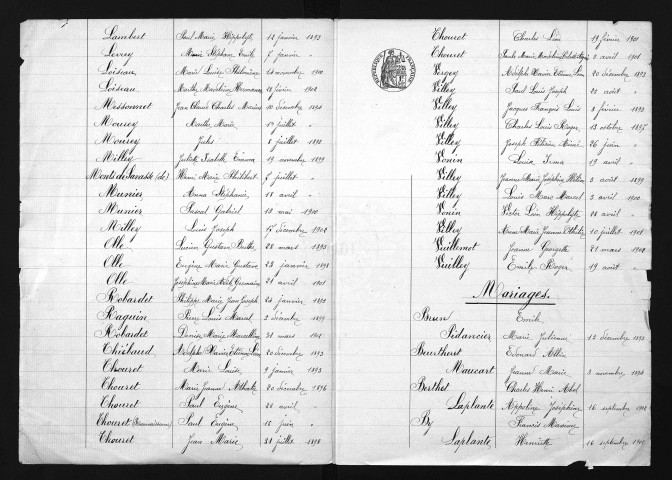 Lambert Paul Marie Hippolyte 12 janvier 1893
Levrey Marie Stéphanie Emile 7 janvier "
Loiseau Marie Louise Philomène novembre 1900
Loiseau Marthe Madeleine 12 février 1902
Messonnet Jean Claude Charles Maurice 10 Décembre
Mourey Marthe Marie juillet "
Mourey Jules 8 juillet 1898
Milley Juliette Isabelle 19 novembre 1899
Monti de Sarasse (de) Henri Marie Philibert 7 juillet "
Munier Anna Stéphanie 18 avril "
Munier Pascal Gabriel 10 mai 1900
Milley Louis Joseph 17 Décembre 1902
Olle Lucien Gustave 28 mars 1895
Olle Eugène Marie Gustave 23 janvier 1898
Olle Joséphine Marie Germaine 21 avril 1901
Robardet Philippe Marie Jean Joseph 25 janvier
Raguin Pierre Louis Marcel 2 Décembre 1899
Robardet Denise Marie Marcelline 31 mars 1901
Thiébaud Adolphe Xavier Etienne Léon 20 Décembre 1893
Thouret Marie Louise 9 janvier 1893
Thouret Marie Jeanne 20 Décembre 1896
Thouret Paul Eugène avril "
Thouret (Reconnaissance) Paul Eugène 15 juin "
Thouret Jean Marie 31 juillet 1898
Thouret Charles Léon 19 février 1901
Thouret Marie 2 avril 1901
RÉPUBLIQUE FRANÇAISE
Vergey Adolphe Xavier Etienne Léon 20 Décembre 1893
Villey Paul Louis Joseph 22 août "
Villey Jacques François Louis 8 février 1893
Villey Charles Louis Roger 13 octobre 1895
Villey Joseph 26 juin "
Vonin Louise Irma 19 avril "
Villey Jeanne Marie Joséphine 3 août 1899
Villey Louis Marc Marcel 3 avril 1900
Vonin Victor Léon Hippolyte 18 avril "
Villey Marie Jeanne 10 juillet 1901
Vuillemot Jeanne Georgette 21 mars 1902
Vuilley Emile Roger 19 août "
Mariages.
Brun Emile
Pédancier Marie Julienne 12 Décembre 1893
Beurthurt Edouard Albin
Maucart Jeanne Marie 3 novembre 1896
Berthet Charles Henri Abel
Laplante Appoline Joséphine 16 septembre 1902
By Francis Maxime
Laplante Henriette 16 septembre 1902